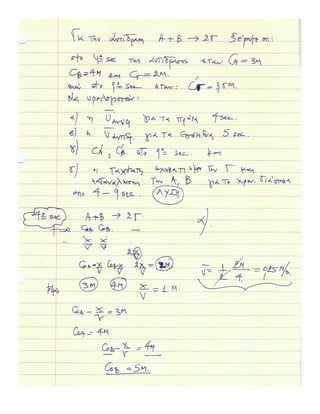 Για την αντίδραση A + B → 2Γ ξέρουμε οτι:
στο 4º sec της αντίδρασης ηταν CA = 3M
CB = 4M και CΓ = 2M.
ενώ στο 9º sec ηταν: CΓ = 3,5M.
Να υπολογιστούν:
α) η Uαντιδ για τα πρώτα 4sec.
β) η Uαντιδ. για τα επόμενα 5 sec.
γ) CA, CB στο 9º sec. και
δ) η ταχύτητα σχηματισμου του Γ και
κατανάλωσης των A, B για το χρον. διάστημα
απο 4 – 9 sec. ΛΥΣΗ
4º sec A + B → 2Γ. α)
t=0 COA COB. —
~ x/V x/V 2x/V
COA-x/V COB-x/V 2x/V = 2M
3M 4M x/V = 1 M.
U = 1/2 2M/4 = 0,25 M/s
COA - x/V = 3M
COA = 4M.
COB - x/V = 4M
COB = 5M.